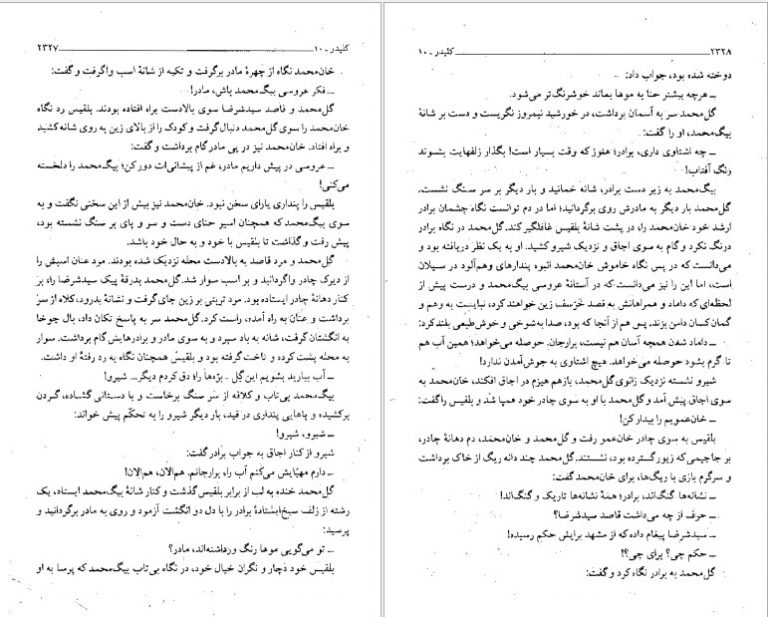 کلیدر ـ ۱۰ ۲۳۲۷
خان‌محمد نگاه از چهرهٔ مادر برگرفت و تکیه از شانهٔ اسب واگرفت و گفت:
ـ فکر عروسی بیگ‌محمد باش، مادر!
گل‌محمد و قاصد سیدشرضا سوی بالادست براه افتاده بودند. بلقیس رد نگاه
خان‌محمد را سوی گل‌محمد دنبال گرفت و کودک را از بالای زین به روی شانه کشید
و براه افتاد. خان‌محمد نیز در پی مادر گام برداشت و گفت:
ـ عروسی در پیش داریم مادر، غم از پیشانی‌ات دور کن؛ بیگ‌محمد را دلخسته
می‌کنی!
بلقیس را پنداری یارای سخن نبود. خان‌محمد نیز بیش از این سخنی نگفت و به
سوی بیگ‌محمد که همچنان اسیر حنای دست و سر و پای بر سنگ نشسته بود،
پیش رفت و گذاشت تا بلقیس با خود و به حال خود باشد.
گل‌محمد و مرد قاصد به بالادست محله نزدیک شده بودند. مرد عنان اسبش را
از دیرک چادر واگردانید و بر اسب سوار شد. گل‌محمد بدرقهٔ پیک سیدشرضا را، بر
کنار دهانهٔ چادر ایستاده بود. مرد تربتی بر زین جای گرفت و نشانهٔ بدرود، کلاه از سر
برداشت و عنان به راه آمده، راست کرد. گل‌محمد سر به پاسخ تکان داد، بال چوخا
به انگشتان گرفت، شانه به باد سپرد و به سوی مادر و برادرهایش گام برداشت. سوار
به محله پشت کرده و تاخت گرفته بود و بلقیس همچنان نگاه به رد رفتهٔ او داشت.
ـ آب بیارید بشویم این گل ـ بژه‌ها را؛ دق کردم دیگر... شیرو!
بیگ‌محمد بی‌تاب و کلافه از سر سنگ برخاست و با دستانی گشاده، گردن
برکشیده و پاهایی پنداری در قید، بار دیگر شیرو را به تحکم پیش خواند:
ـ شیرو، شیرو!
شیرو از کنار اجاق به جواب برادر گفت:
ـ دارم مهیّایش می‌کنم آب راه برارجانم. هم‌الان، هم‌الان!
گل‌محمد خنده به لب از برابر بلقیس گذشت و کنار شانهٔ بیگ‌محمد ایستاد، یک
رشته از زلف سیخ‌ایستادهٔ برادر را با دل دو انگشت آزمود و روی به مادر برگردانید و
پرسید:
ـ تو می‌گویی موها رنگ ورداشته‌اند، مادر؟
بلقیس خود دچار و نگران خیال خود، در نگاه بی‌تاب بیگ‌محمد که پرسا به او
۲۳۲۸ کلیدر ـ ۱۰
دوخته شده بود، جواب داد:
ـ هرچه بیشتر حنا به موها بماند خوشرنگ‌تر می‌شود.
گل‌محمد سر به آسمان برداشت، در خورشید نیمروز نگریست و دست بر شانهٔ
بیگ‌محمد، او را گفت:
ـ چه اشتاوی داری، برادر؛ هنوز که وقت بسیار است! بگذار زلفهایت بشوند
رنگ آفتاب!
بیگ‌محمد به زیر دست برادر، شانه خمانید و بار دیگر بر سر سنگ نشست.
گل‌محمد بار دیگر به مادرش روی برگردانید؛ اما در دم توانست نگاه چشمان برادر
ارشد خود خان‌محمد را، در پشت شانهٔ بلقیس غافلگیر کند. گل‌محمد در نگاه برادر
درنگ نکرد و گام به سوی اجاق و نزدیک شیرو کشید. او به یک نظر دریافته بود و
می‌دانست که در پس نگاه خاموش خان‌محمد انبوه پندارهای وهم‌آلود در سیلان
است، اما این را نیز می‌دانست که در آستانهٔ عروسی بیگ‌محمد و درست پیش از
لحظه‌ای که داماد و همراهانش به قصد خرسف زین خواهند کرد، نبایست به وهم و
گمان کسان دامن بزند. پس هم از آنجا که بود، صدا به شوخی و خوش‌طبعی بلند کرد:
ـ داماد شدن همچه آسان هم نیست، برارجان. حوصله می‌خواهد؛ همین آب هم
تا گرم بشود حوصله می‌خواهد. هیچ اشتاوی به جوش‌آمدن ندارد!
شیرو نشسته نزدیک زانوی گل‌محمد، بازهم هیزم در اجاق افکند، خان‌محمد به
سوی اجاق پیش آمد و گل‌محمد با او به سوی چادر خود همپا شد و بلقیس را گفت:
ـ خان‌عمویم را بیدار کن!
بلقیس به سوی چادر خان‌عمو رفت و گل‌محمد و خان‌محمد، دم دهانهٔ چادر،
بر جاجیمی که زیور گسترده بود، نشستند. گل‌محمد چند دانه ریگ از خاک برداشت
و سرگرم بازی با ریگ‌ها، برای خان‌محمد گفت:
ـ نشانه‌ها گنگ‌اند، برادر؛ همهٔ نشانه‌ها تاریک و گنگ‌اند!
ـ حرف از چه می‌داشت قاصد سیدشرضا؟
ـ سیدشرضا پیغام داده که از مشهد برایش حکم رسیده!
ـ حکم چی؟ برای چی؟!
گل‌محمد به برادر نگاه کرد و گفت: